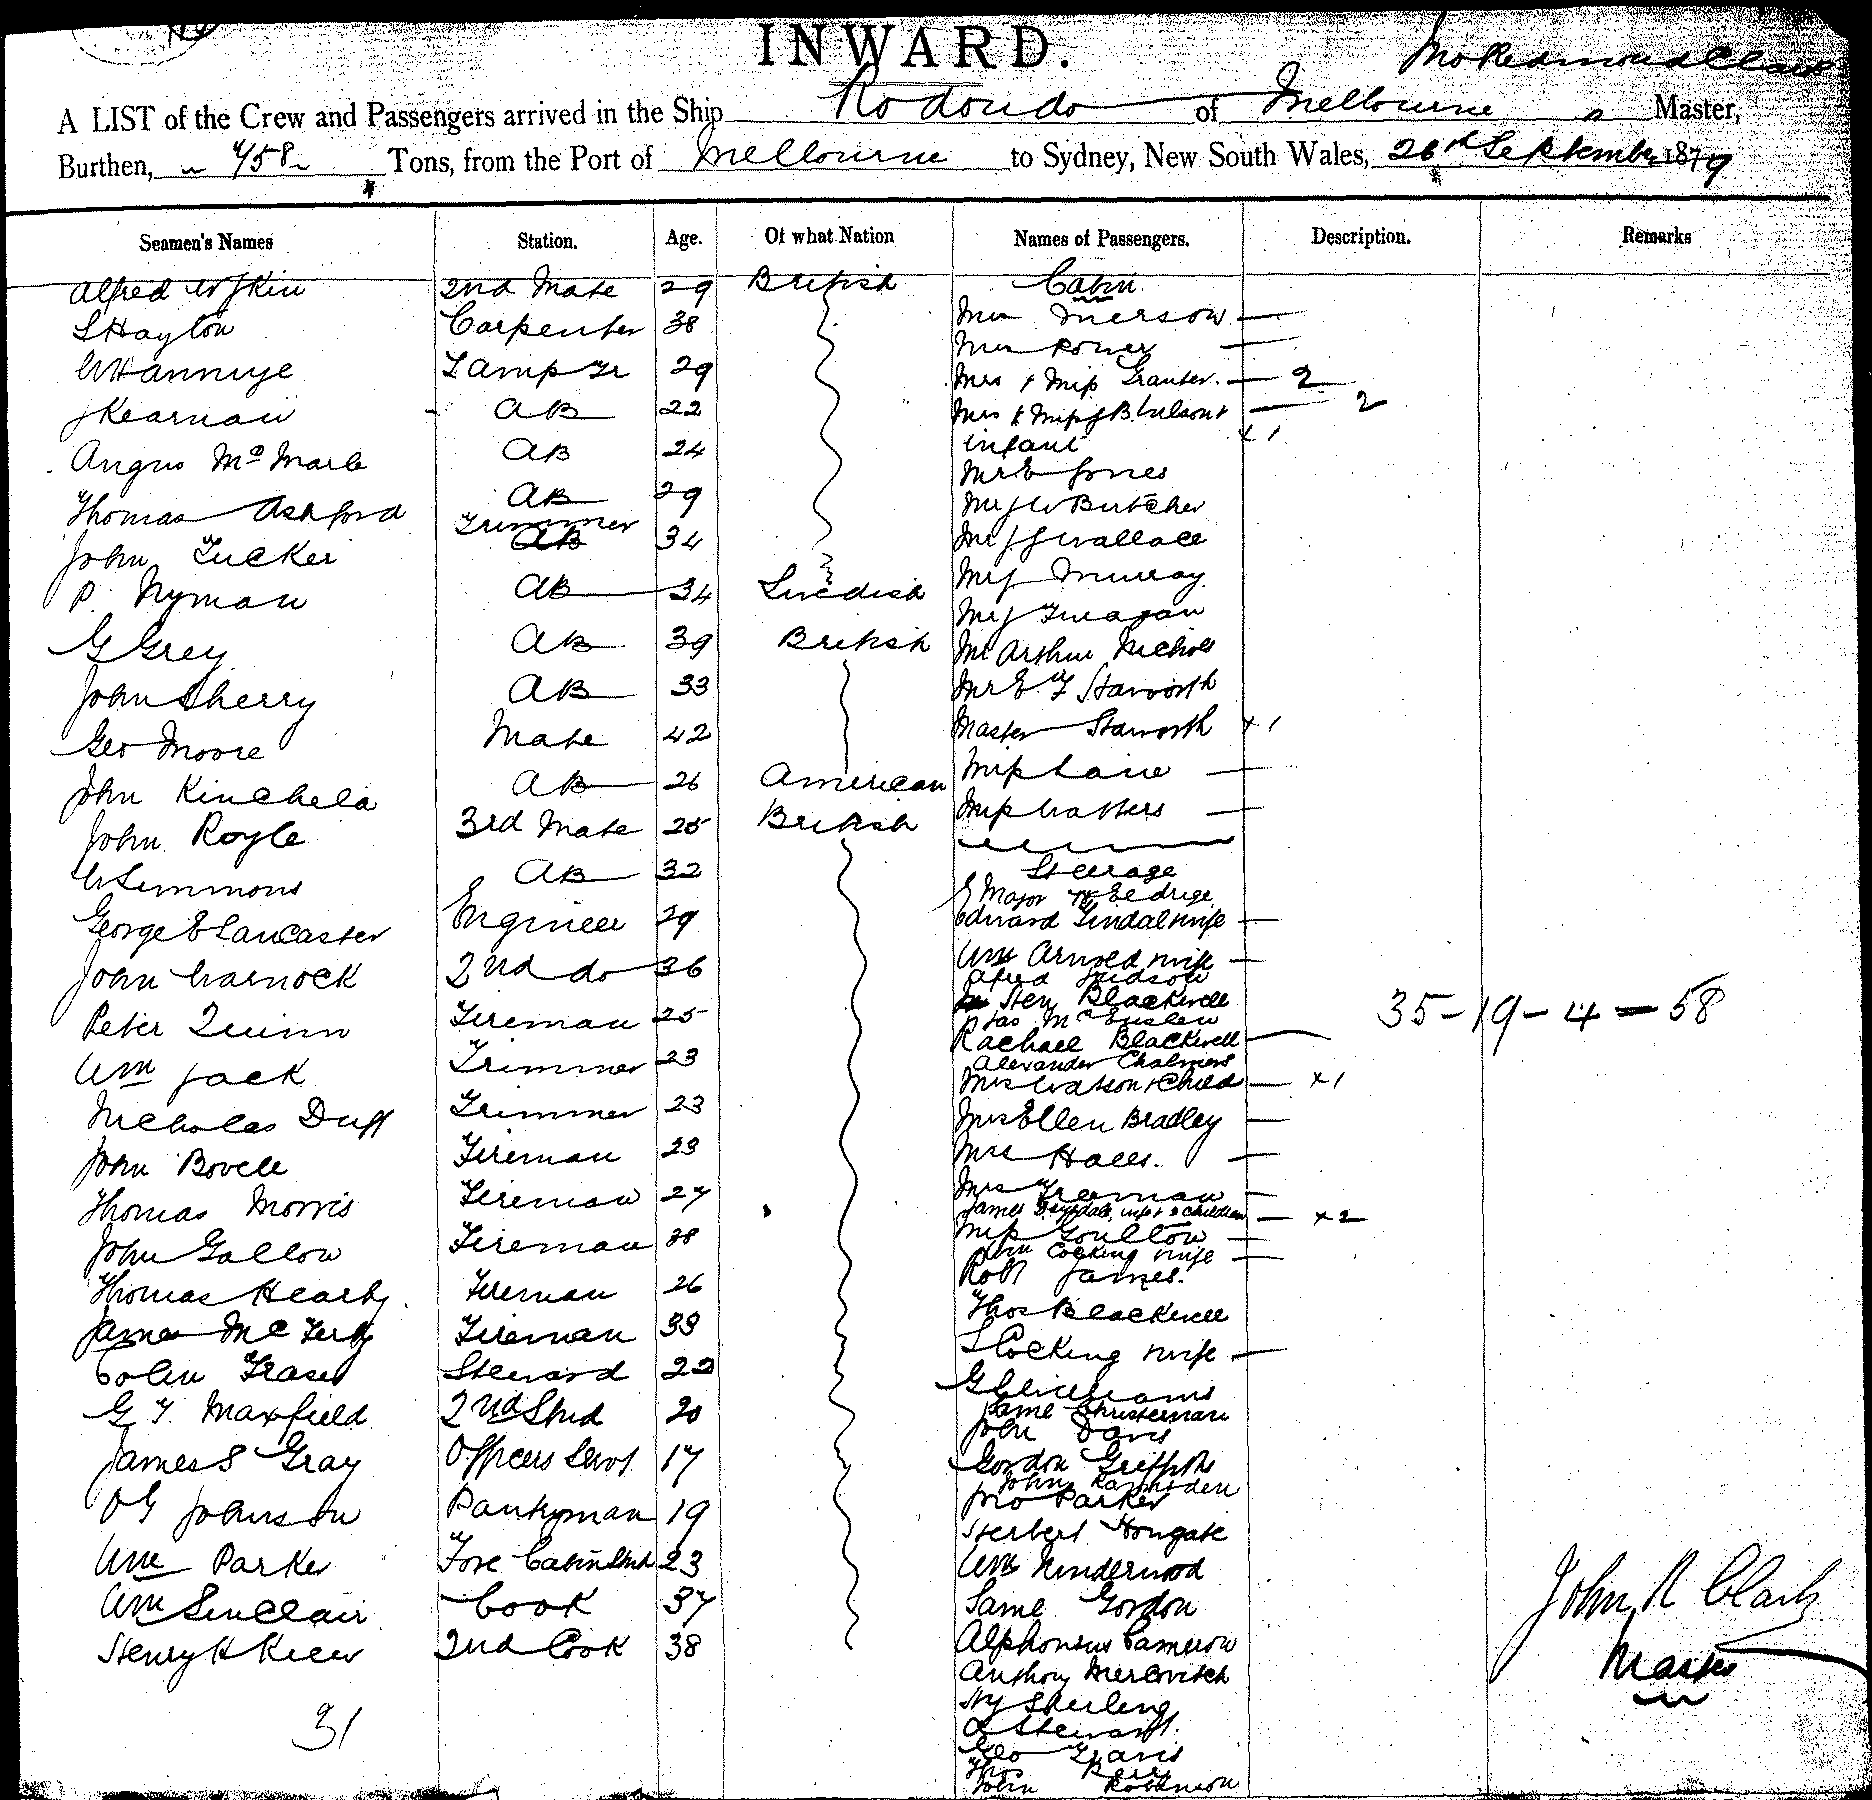 INWARD.
A LIST of the Crew and Passengers arrived in the Ship Rodondo of Melbourne, Master,
Burthen, 458 Tons, from the Port of Melbourne to Sydney, New South Wales, 26th September 1879
Seamen's Names Station. Age. Of what Nation Names of Passengers. Description. Remarks
Alfred 2nd Mate 29 British Cabin
S Hayton Carpenter 38
Mrs Merson —
Lamp Tr 29
Mrs Power —
Mrs & Miss Granter. — 2
J Kearnan AB 22
Mrs & Miss J B Wilson & — 2
infant x 1
Angus Mc AB 24
Mr E Jones
Thomas Ashford AB 29
Mr J W Butcher
John Tucker Trimmer AB 34
Mr J G Wallace
P. Nyman AB 34 Swedish
Mr J Murray
Mr J
G Grey AB 39 British
Mr Arthur Nichols
John Sherry AB 33
Mr E T Staworth
Geo Moore Mate 42
Master Staworth x 1
John Kinchela AB 26 American
Miss Laive —
John Royle 3rd Mate 25 British
Miss Watters —
W Simmons AB 32
Steerage
E Major W Eldrige
George E Lancaster Engineer 29
Edward Tindal wife —
John Warnock 2nd do 36
Wm Arnold wife —
Alfred Hudson
Hen Blackwell
Peter Quinn Fireman 25
Jas Mc
Rachael Blackwell —
35 - 19 - 4 = 58
Wm Jack Trimmer 23
Alexander Chalmers
Mrs Watson & Child — x 1
Nicholas Duff Trimmer 23
Mrs Ellen Bradley —
John Bovell Fireman 23
Mrs Hall. —
Thomas Morris Fireman 27
Mrs Freeman —
James wife & 2 children — x 2
John Gallow Fireman 38
Miss Goulton —
Wm Cocking wife —
Thomas Hearty Fireman 26
Robt James.
James Mc Fireman 33
Thos Blackwell
Colin Fraser Steward 22
S Cocking wife —
G Williams
G T. Maxfield 2nd Stwd 20
Saml Christerman
John Davis
James S Gray Officers Servt 17
Gordon Griffiths
John Ramsden
O G Johnson Pantryman 19
Jno Parker
Herbert Hongate
Wm Parker Fore Cabin Stwd 23
Wm Underwood
Wm Sinclair Cook 37
Saml Gordon
Henry H Keen 2nd Cook 38
Alphonsus Cameron
John R Clark
Master
Anthony Mercovitch
Hy Sterling
31
A Stewart.
Geo Travis
Thos
John Robinson